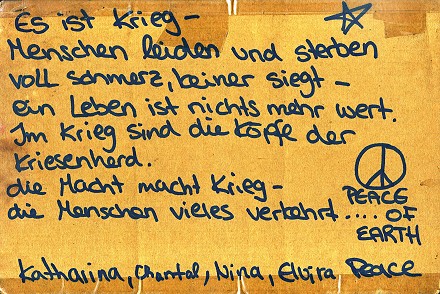 Es ist Krieg -
Menschen leiden und sterben
voll schmerz, keiner siegt -
ein Leben ist nichts mehr wert.
Im Krieg sind die Köpfe der
Kriesenherd.
die Macht macht Krieg -
die Menschen vieles verkehrt ....
PEACE
OF
EARTH
Katharina, Chantal, Nina, Elvira Peace